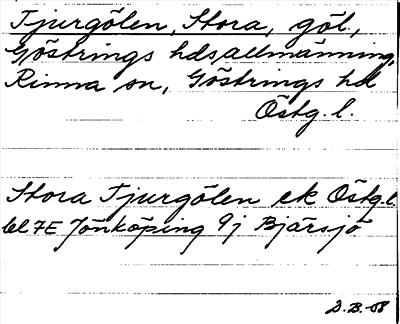 Tjurgölen, Stora, göl,
Göstrings hdsallmänning,
Rinna sn, Göstrings hd
Östg. l.
Stora Tjurgölen ek Östg. l.
bl 7E Jönköping 9j Bjärsjö
D.B.-58